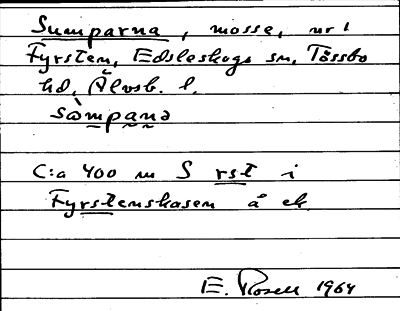 Sumparna, mosse, nr 1
Fyrsten, Edsleskogs sn, Tössbo
hd, Älvsb. l.
sòmpana
C:a 400 m S rst i
Fyrstenskasen å ek
E. Rosell 1964